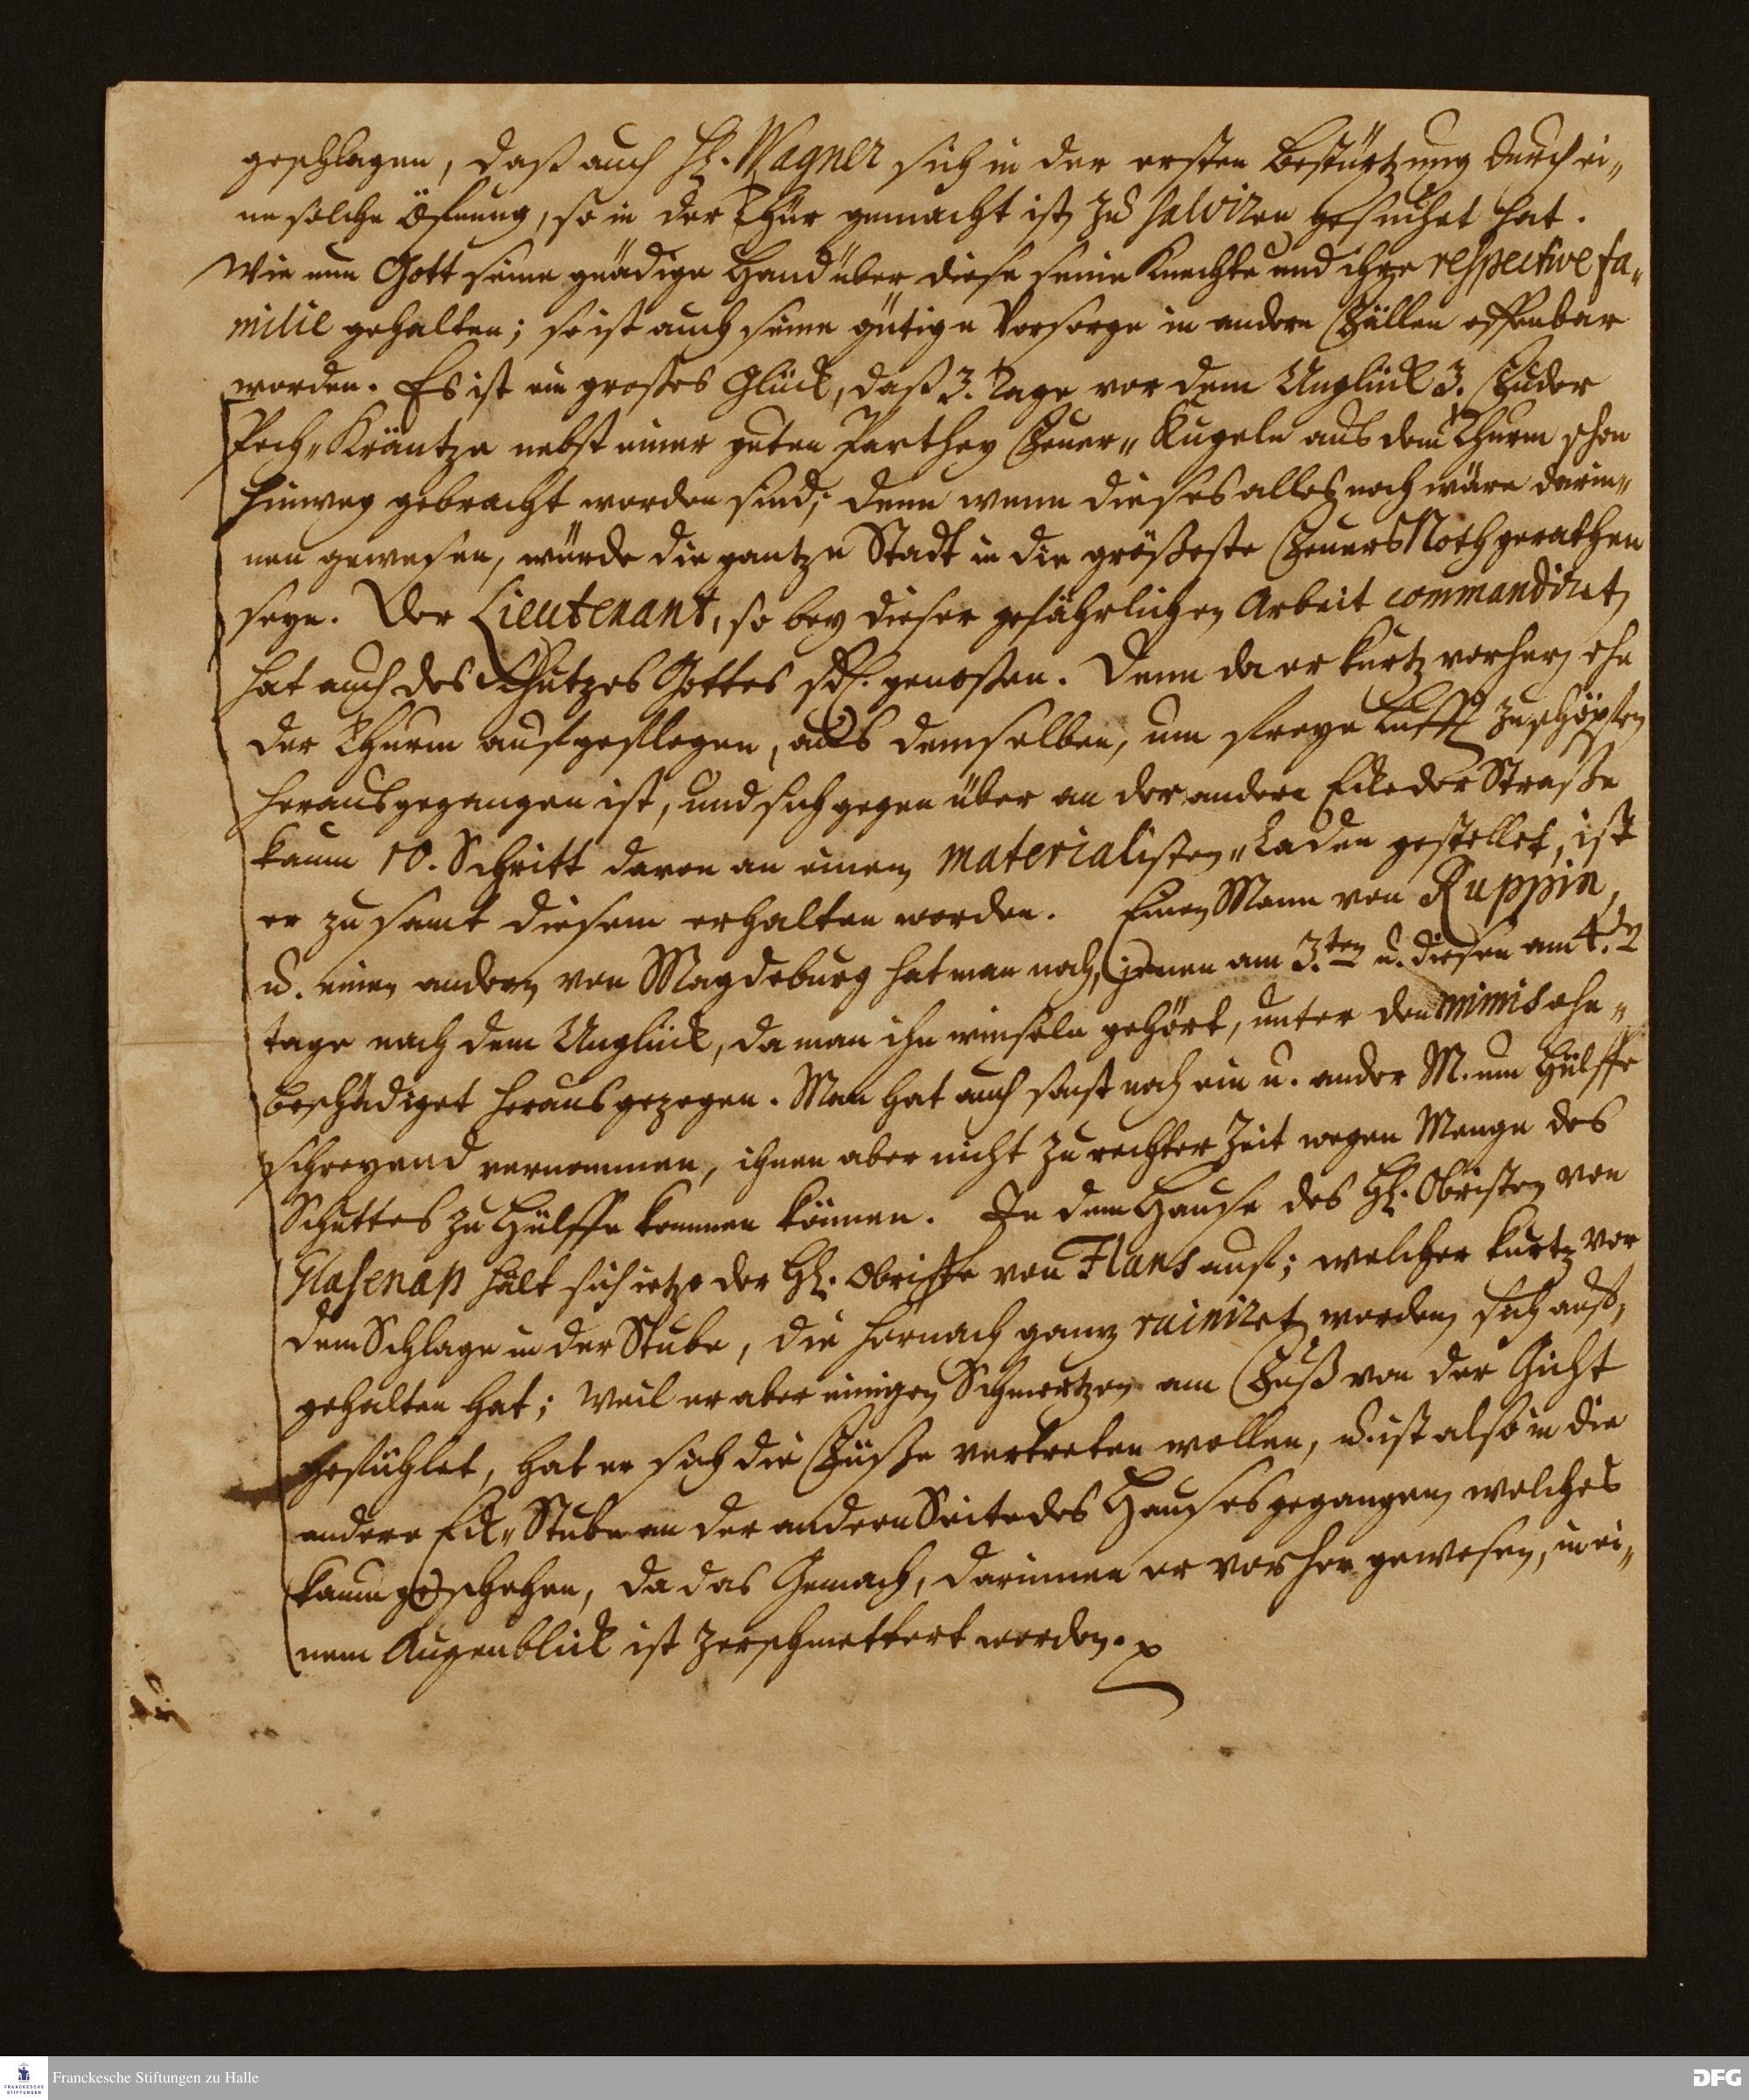 geschlagen, daß auch H. Wagner sich in der ersten Bestürtzung durch ei„
ne solche Öfnung, so in der Thür gemacht ist zu salviren gesuchet hat.
Wie nun Gott seine gnädige Hand über diese seine Knechte und ihre respective fa„
milie gehalten; so ist auch seine gütige Vorsorge in andern Fällen offenbar
worden. Es ist ein großes Glück, daß 3. Tage vor dem Unglück 3. Fuder
Pech„Kräntze nebst einer guten Parthey Feuer„Kugeln aus dem Thurm schon
hinweg gebracht worden sind; denn wenn dieses alles noch wäre darin„
nen gewesen, würde die gantze Stadt in die größeste FeuersNoth gerathen
seyn. Der Lieutenant, so bey dieser gefährlichen Arbeit commandiret,
hat auch des Schutzes Gottes genoßen. Denn da er kurtz vorher, ehe
der Thurm aufgeflogen, aus demselben, um freye Lufft zu schöpfen
herausgegangen ist, und sich gegen über an der andern Ecke der Straße
kaum 10. Schritt davon an einen Materialisten„Laden gestellet, ist
er zu samt diesem erhalten worden. Einen Mann von Ruppin,
u. einen andern von Magdeburg hat man noch, jenen am 3.ten u. diesen am 4.
tage nach dem Unglück, da man ihn winseln gehört, unter den ruinis ohn„
beschädiget herausgezogen. Man hat auch sonst noch ein u. ander M. um Hülffe
schreyend vernommen, ihnen aber nicht zu rechter Zeit wegen Menge des
Schuttes zu Hülffe kommen können. In dem Hause des H. Obristen von
Glasenap hält sich ietzo der H. Obriste von Flans auf; welcher kurtz vor
dem Schlage in der Stube, die hernach gantz ruiniret worden, sich auf„
gehalten hat; weil er aber einigen Schmertzen am Fuß von der Gicht
gefühlet, hat er sich die Füße vertreten wollen, u. ist also in die
andere Eck„Stube an der andern Seite des Hauses gegangen, welches
kaum geschehen, da das Gemach, darinnen er vorher gewesen, in ei„
nem Augenblick ist zerschmettert worden.
Franckesche Stiftungen zu Halle
FRANCKESCHE STIFTUNGEN
DFG